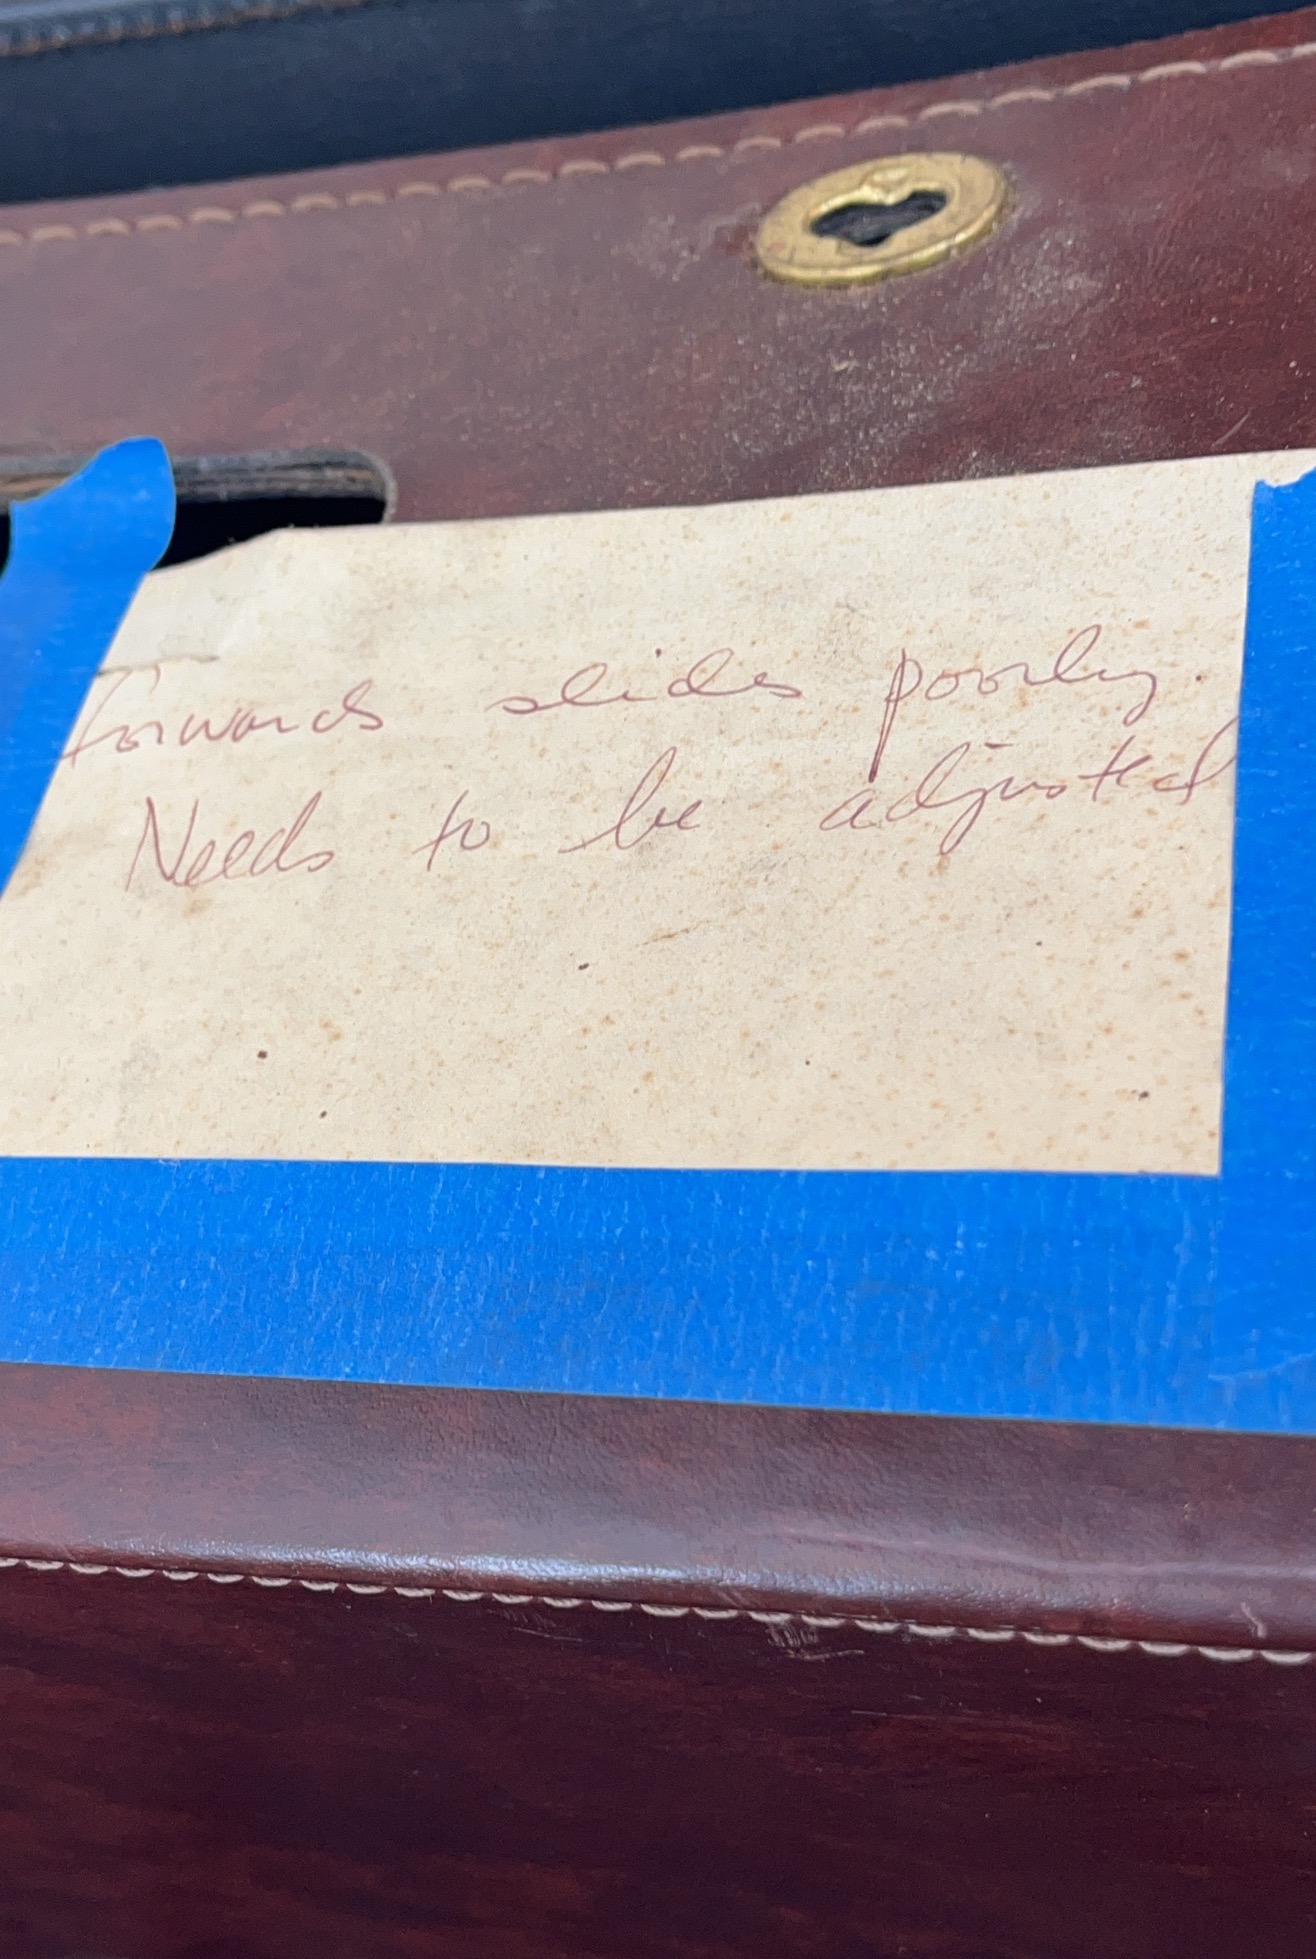 Forwards slides poorly.
Needs to be adjusted